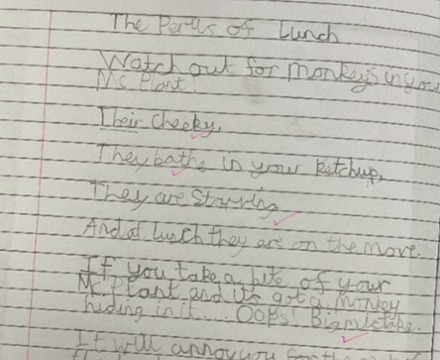 The Perils of Lunch
Watch out for monkeys in you
Mc Plant!
Their cheeky,
They bathe in your ketchup,
They are starving
And at lunch they are on the move.
If you take a bite of your
Mc Plant and its got a monkey
hiding in it.... Oops! Big mistake.
It will annoy you for the